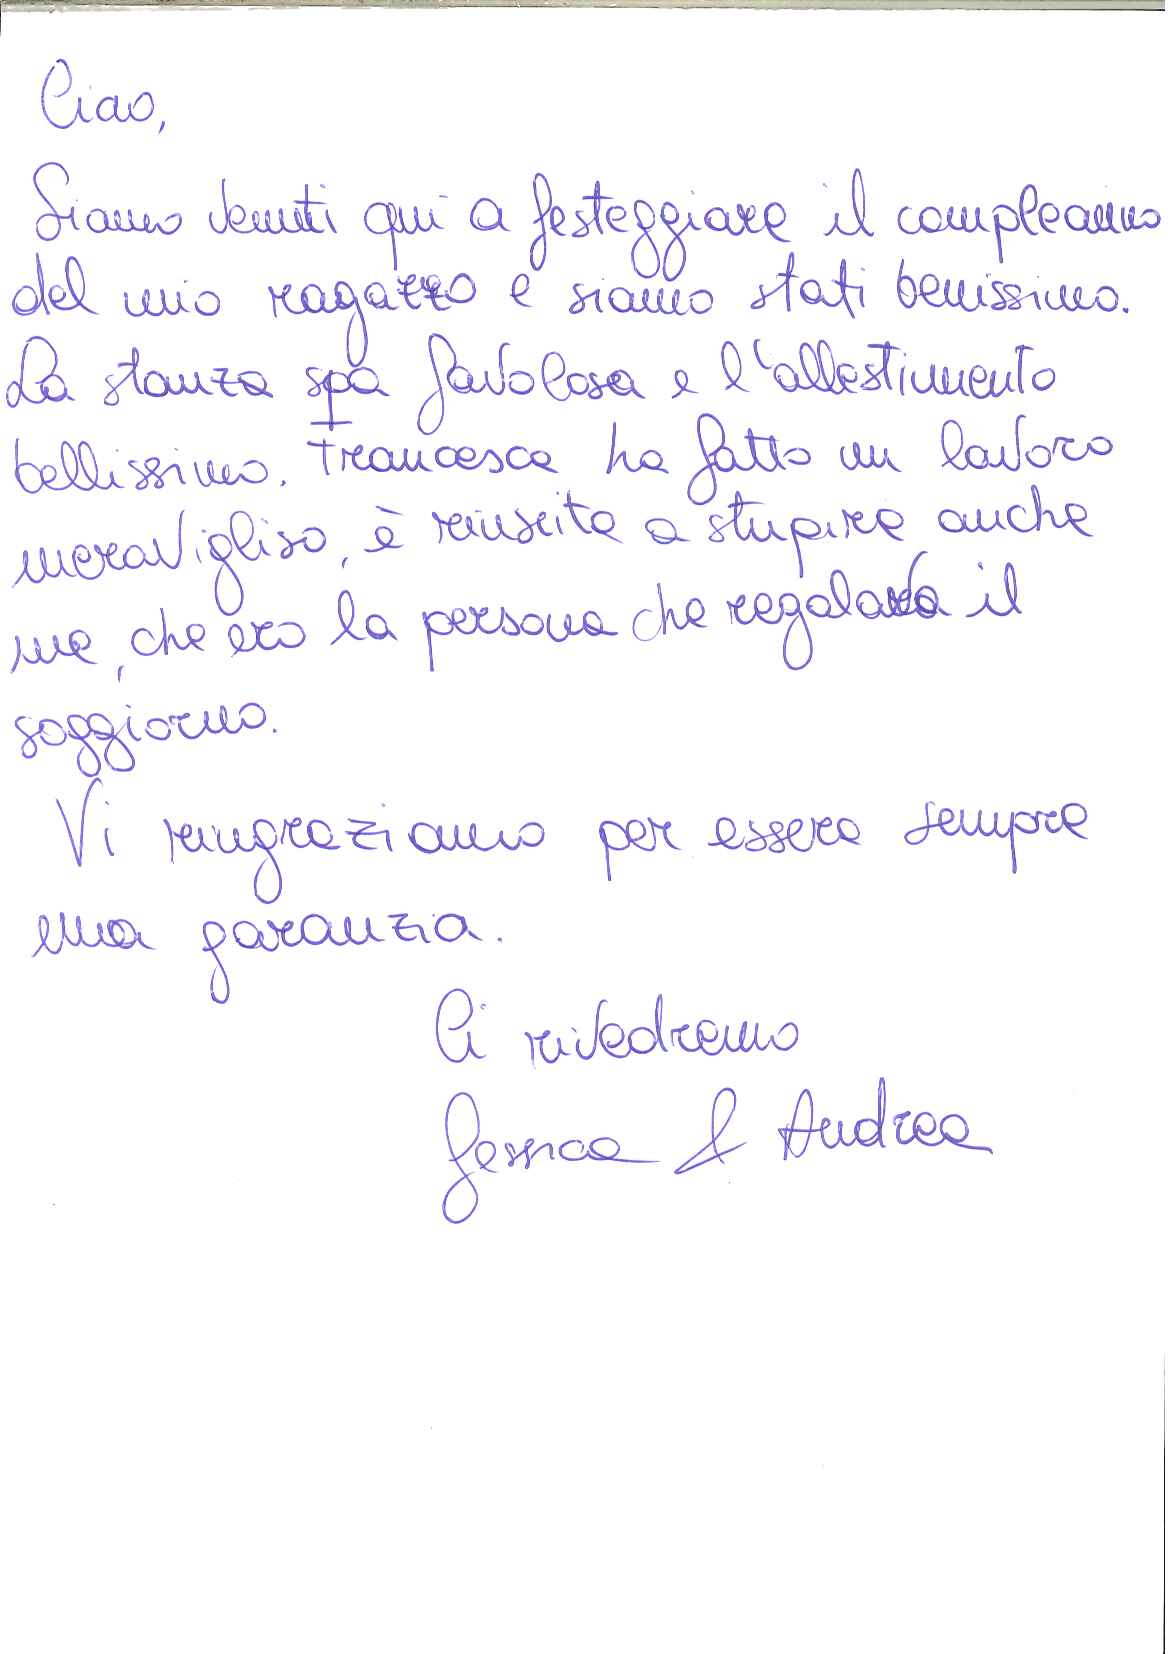 Ciao,
Siamo venuti qui a festeggiare il compleanno
del mio ragazzo e siamo stati benissimo.
La stanza spa favolosa e l'allestimento
bellissimo. Francesca ha fatto un lavoro
meravigliso, è riuscita a stupire anche
me, che ero la persona che regalava il
soggiorno.
Vi ringraziamo per essere sempre
una garanzia.
Ci rivedremo
Jessica & Andrea